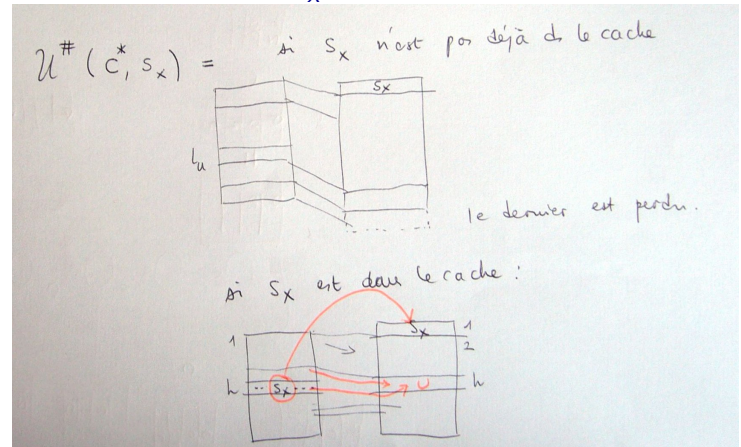 U# (c*, sₓ) = si sₓ n'est pas déjà ds le cache
sₓ
lu
le dernier est perdu.
si sₓ est dans le cache :
1 sₓ 1
2
h sₓ ∪ h